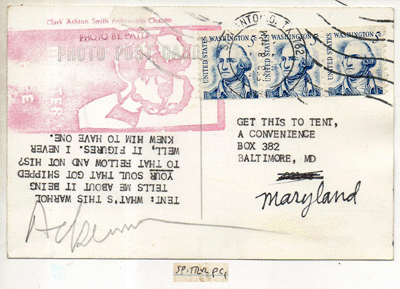 Clark Ashton Smith
PHOTO BY PATTI
PHOTO POST CARD
UNITED STATES WASHINGTON 5c
UNITED STATES WASHINGTON 5c
UNITED STATES WASHINGTON 5c
GET THIS TO TENT,
A CONVENIENCE
BOX 382
BALTIMORE, MD
Maryland
TENT: WHAT'S THIS WARHOL
TELLS ME ABOUT IT BEING
YOUR SOUL THAT GOT SHIPPED
TO THAT FELLOW AND NOT HIS?
WELL, IT FIGURES. I NEVER
KNEW HIM TO HAVE ONE.